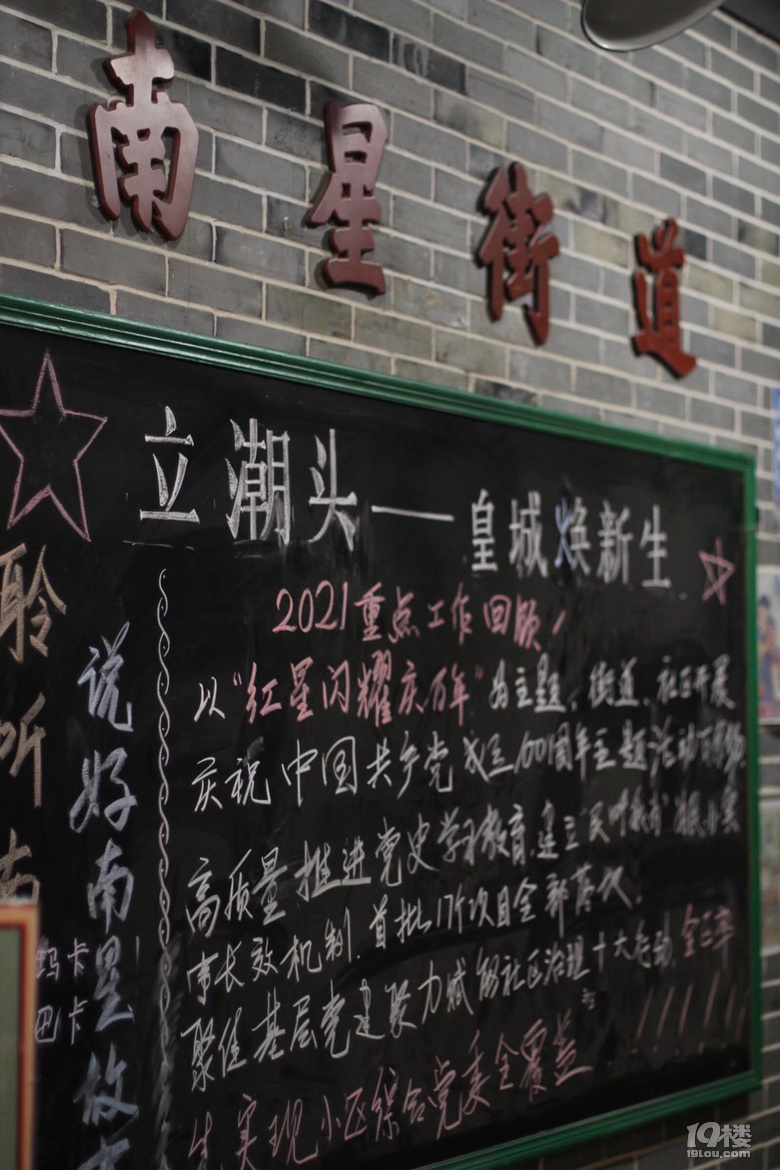 南星街道
立潮头——皇城焕新生
2021重点工作回顾!
以“红星闪耀庆百年”为主题,街道、社区开展
庆祝中国共产党成立100周年主题活动百余场
高质量推进党史学习教育,建立“民呼我为”为民办实
事长效机制,首批17个项目全部落地.
聚焦基层党建聚力赋能社区治理十大行动,全区率
先实现小区综合党委全覆盖 !!!!!!
聆听南
说好南星故事
玛卡
巴卡
19楼
19lou.com